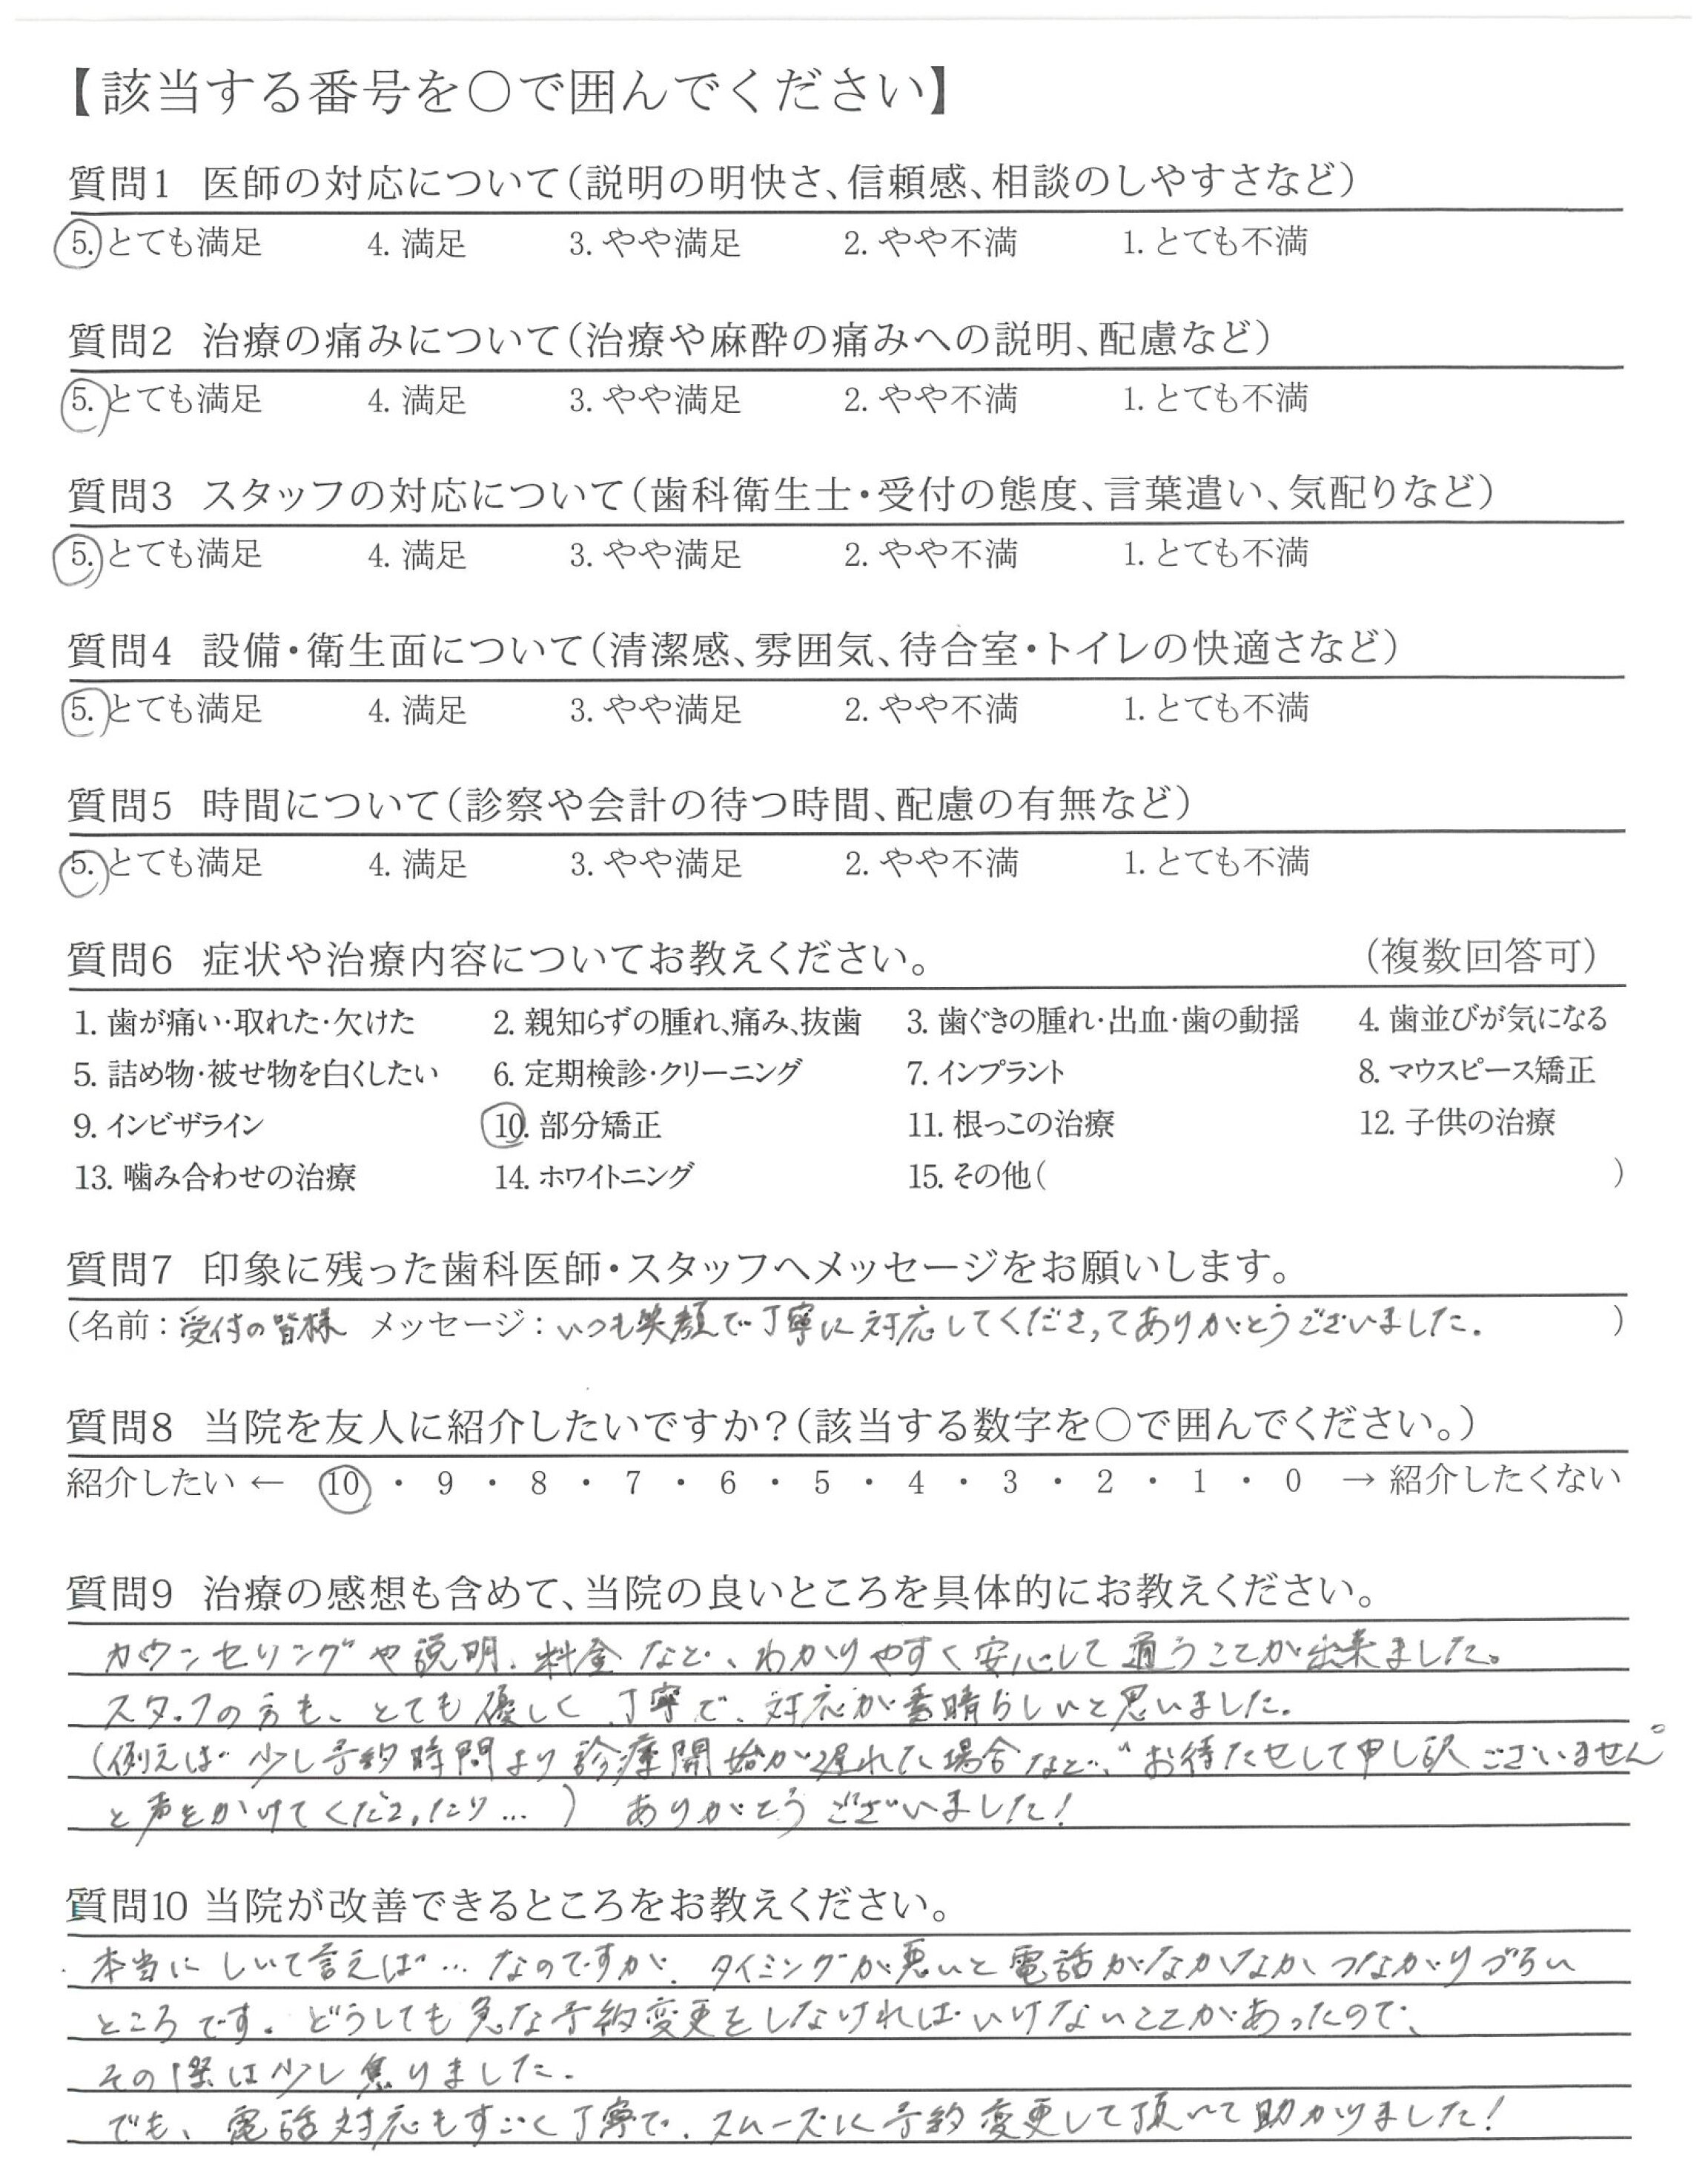 【該当する番号を〇で囲んでください】
質問1 医師の対応について(説明の明快さ、信頼感、相談のしやすさなど)
5. とても満足 4. 満足 3. やや満足 2. やや不満 1. とても不満
質問2 治療の痛みについて(治療や麻酔の痛みへの説明、配慮など)
5. とても満足 4. 満足 3. やや満足 2. やや不満 1. とても不満
質問3 スタッフの対応について(歯科衛生士・受付の態度、言葉遣い、気配りなど)
5. とても満足 4. 満足 3. やや満足 2. やや不満 1. とても不満
質問4 設備・衛生面について(清潔感、雰囲気、待合室・トイレの快適さなど)
5. とても満足 4. 満足 3. やや満足 2. やや不満 1. とても不満
質問5 時間について(診察や会計の待つ時間、配慮の有無など)
5. とても満足 4. 満足 3. やや満足 2. やや不満 1. とても不満
質問6 症状や治療内容についてお教えください。 (複数回答可)
1. 歯が痛い・取れた・欠けた 2. 親知らずの腫れ、痛み、抜歯 3. 歯ぐきの腫れ・出血・歯の動揺 4. 歯並びが気になる
5. 詰め物・被せ物を白くしたい 6. 定期検診・クリーニング 7. インプラント 8. マウスピース矯正
9. インビザライン 10. 部分矯正 11. 根っこの治療 12. 子供の治療
13. 噛み合わせの治療 14. ホワイトニング 15. その他( )
質問7 印象に残った歯科医師・スタッフへメッセージをお願いします。
(名前：受付の皆様 メッセージ：いつも笑顔で丁寧に対応してくださってありがとうございました. )
質問8 当院を友人に紹介したいですか？(該当する数字を〇で囲んでください。)
紹介したい ← 10 ・ 9 ・ 8 ・ 7 ・ 6 ・ 5 ・ 4 ・ 3 ・ 2 ・ 1 ・ 0 → 紹介したくない
質問9 治療の感想も含めて、当院の良いところを具体的にお教えください。
カウンセリングや説明、料金など、わかりやすく安心して通うことが出来ました。
スタッフの方も、とても優しく、丁寧で、対応が素晴らしいと思いました。
(例えば 少し予約時間より診療開始が遅れた場合など、"お待たせして申し訳ございません"
と声をかけてくださったり…) ありがとうございました！
質問10 当院が改善できるところをお教えください。
本当にしいて言えば…なのですが、タイミングが悪いと電話がなかなかつながりづらい
ところです。どうしても急な予約変更をしなければいけないことがあったので、
その際は少し焦りました.
でも、電話対応もすごく丁寧で、スムーズに予約変更して頂いて助かりました！